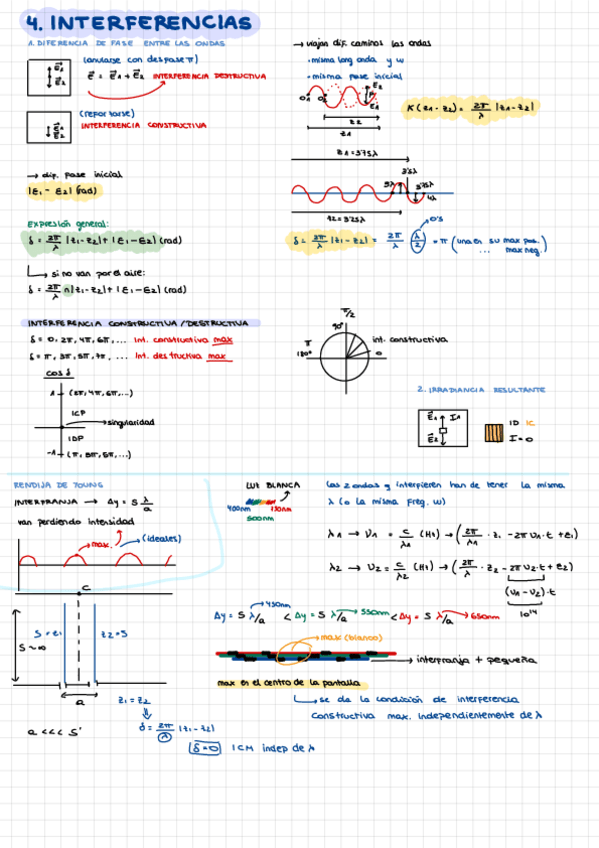 4. INTERFERENCIAS
1. DIFERENCIA DE FASE ENTRE LAS ONDAS
(anularse con desfase π)
E1
E2
E = E1 + E2 INTERFERENCIA DESTRUCTIVA
(reforzarse)
INTERFERENCIA CONSTRUCTIVA
→ dif. fase inicial
|ε1 - ε2| (rad)
Expresión general:
δ = 2π/λ |z1-z2| + |ε1-ε2| (rad)
si no van por el aire:
δ = 2π/λ n|z1-z2| + |ε1-ε2| (rad)
→ viajan dif. caminos las ondas
· misma long onda y w
· misma fase inicial
E2
E1
z2
z1
K(z1-z2) = 2π/λ |z1-z2|
z1 = 3'75λ
3'5λ
3λ
3'75λ
4λ
z2 = 3'25λ
δ = 2π/λ |z1-z2| = 2π/λ · λ/2 = π (una en su max pos.
... max neg.)
0'5
INTERFERENCIA CONSTRUCTIVA / DESTRUCTIVA
δ = 0, 2π, 4π, 6π, ... Int. constructiva max
δ = π, 3π, 5π, 7π, ... Int. destructiva max
cos δ
1 - (2π, 4π, 6π, ...)
ICP
→ singularidad
IDP
-1 - (π, 3π, 5π, ...)
π/2
90º
π
180º
0
int. constructiva
2. IRRADIANCIA RESULTANTE
E1 I1
E2
ID IC
I = 0
RENDIJA DE YOUNG
INTERFRANJA → Δy = S λ/a
van perdiendo intensidad
max.
(ideales)
C
S = z1
z2 = S
S ~ ∞
a
a <<< S'
z1 = z2
δ = 2π/λ |z1-z2|
δ=0 ICM indep de λ
LUZ BLANCA
400nm
780nm
500nm
Las 2 ondas q interfieren han de tener la misma
λ (o la misma freq. w)
λ1 → υ1 = c/λ1 (Hz) → (2π/λ1 · z1 - 2π υ1 · t + ε1)
λ2 → υ2 = c/λ2 (Hz) → (2π/λ · z2 - 2π υ2 · t + ε2)
(υ1 - υ2) · t
10^14
Δy = S λ/a < Δy = S λ/a < Δy = S λ/a
450nm
550nm
650nm
max (blanco)
→ interfranja + pequeña
max en el centro de la pantalla
se da la condición de interferencia
constructiva max. independientemente de λ